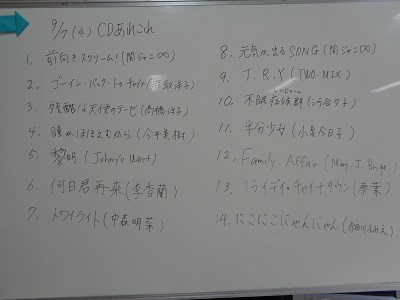 9/7(水) CDあれこれ
1. 前向きスクリーム!(関ジャニ∞)
2. ゴーイン・バック・トゥ・チャイナ(鹿取洋子)
3. 残酷な天使のテーゼ(高橋洋子)
4. 瞳がほほえむから(今井美樹)
5. 黎明(Johny's West)
6. 何日君再来(李香蘭)
7. トワイライト(中森明菜)
8. 元気が出るSONG(関ジャニ∞)
9. T.R.Y(TWO-MIX)
10. 不眠症候群(河合夕子)
11. 半分少女(小泉今日子)
12. Family Affair(Mary J. Blige)
13. フライディ・チャイナタウン(泰葉)
14. にこにこにゃんにゃん(ふみえ)